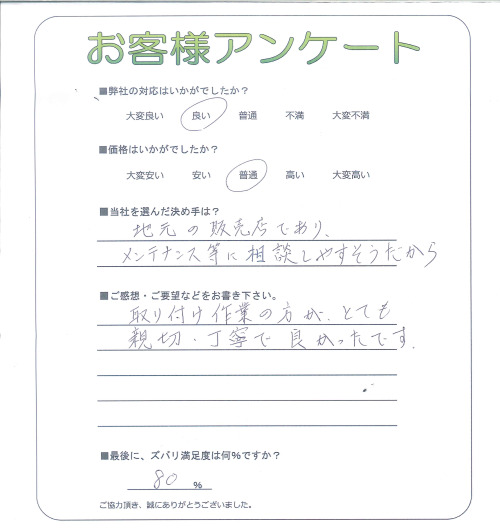 お客様アンケート
■弊社の対応はいかがでしたか？
大変良い 良い 普通 不満 大変不満
■価格はいかがでしたか？
大変安い 安い 普通 高い 大変高い
■当社を選んだ決め手は？
地元の販売店であり、
メンテナンス等に相談しやすそうだから
■ご感想・ご要望などをお書き下さい。
取り付け作業の方が、とても
親切・丁寧で良かったです。
■最後に、ズバリ満足度は何％ですか？
80 ％
ご協力頂き、誠にありがとうございました。